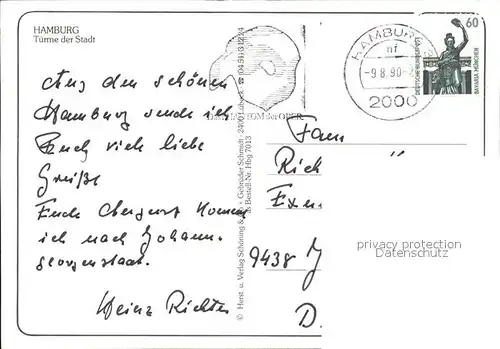 HAMBURG
Türme der Stadt
Aus dem schönen
Hamburg sende ich
Euch viele liebe
Grüße
Ende August komme
ich nach Johann-
georgenstadt.
Heinz Richter
© Herst. u. Verlag Schöning & Co · Gebrüder Schmidt · 2400 Lübeck
Bestell-Nr. Hbg 7013
HAMBURG
nf
-9.8.90
2000
60
DEUTSCHE BUNDESPOST
BAVARIA MÜNCHEN
Fam
Rich
9438 J
D
privacy protection
Datenschutz